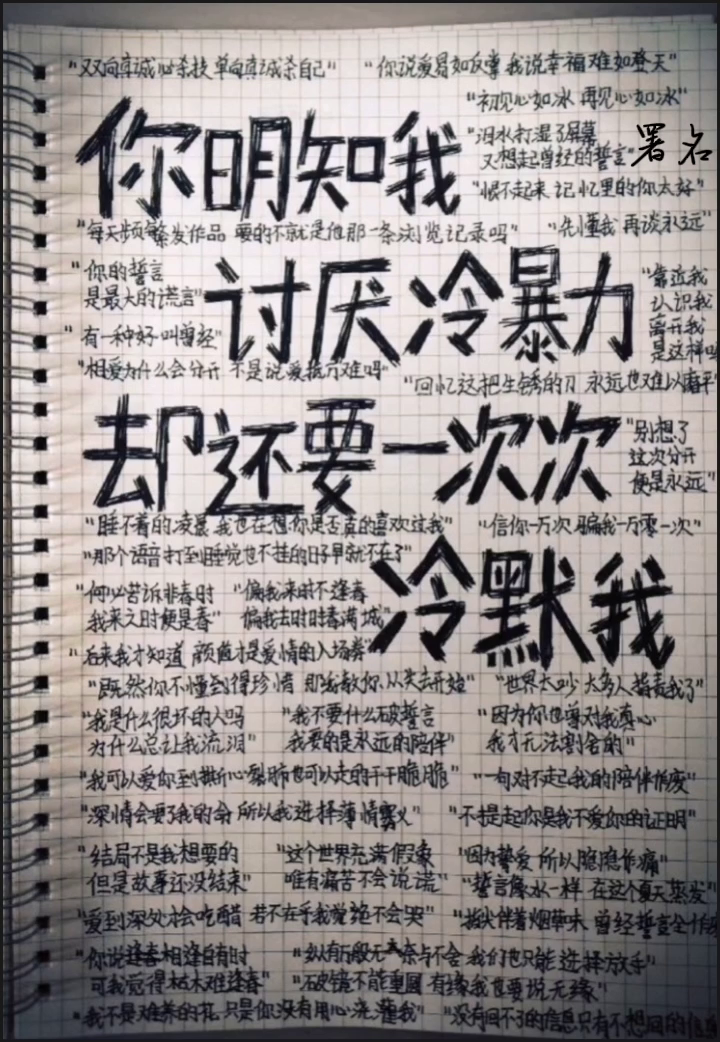 "双向真诚必杀技 单向真诚杀自己" "你说爱易如反掌 我说幸福难如登天"
"初见心如冰 再见心如冰"
你明知我
"泪水打湿了屏幕
又想起曾经的誓言"
署名
"恨不起来 记忆里的你太好"
"每天频繁发作品 要的不就是他那一条浏览记录吗" "先懂我 再谈永远"
"你的誓言
是最大的谎言"
讨厌冷暴力
"靠近我
认识我
离开我
是这样
"有一种好 叫曾经"
"相爱为什么会分开 不是说爱抵万难吗"
"回忆这把生锈的刀 永远也难以
却还要一次次
"别想了
这次分开
便是永远"
"睡不着的凌晨 我也在想 你是否真的喜欢过我" "信你一万次 骗我一万零一次"
"那个语音打到睡觉也不挂的日子早就不在了"
冷默我
"何必苦诉非春时
我来之时便是春"
"偏我来时不逢春
偏我去时时春满城"
"后来我才知道 颜值才是爱情的入场券"
"既然你不懂到得珍惜 那我教你从失去开始" "世界太吵 太多人指责我了"
"我是什么很坏的人吗
为什么总让我流泪"
"我不要什么破誓言
我要的是永远的陪伴"
"因为你也曾对我真心
我才无法割舍的"
"我可以爱你到撕心裂肺也可以走的干干脆脆" "一句对不起我的陪伴作废"
"深情会要了我的命 所以我选择薄情寡义" "不提起你是我不爱你的证明"
"结局不是我想要的
但是故事还没结束"
"这个世界充满假象
唯有痛苦不会说谎"
"因为挚爱 所以隐隐作痛"
"誓言像水一样 在这个夏天蒸发"
"爱到深处才会吃醋 若不在乎我觉绝不会哭" "指尖伴着烟草味 曾经誓言全作
"你说逢春相逢自有时
可我觉得枯木难逢春"
"纵有万般无奈与不舍 我们也只能选择放手"
"破镜不能重圆 有缘我也要说无缘"
"我不是难养的花 只是你没有用心浇灌我" "没有回不了的信息只有不想回的信息